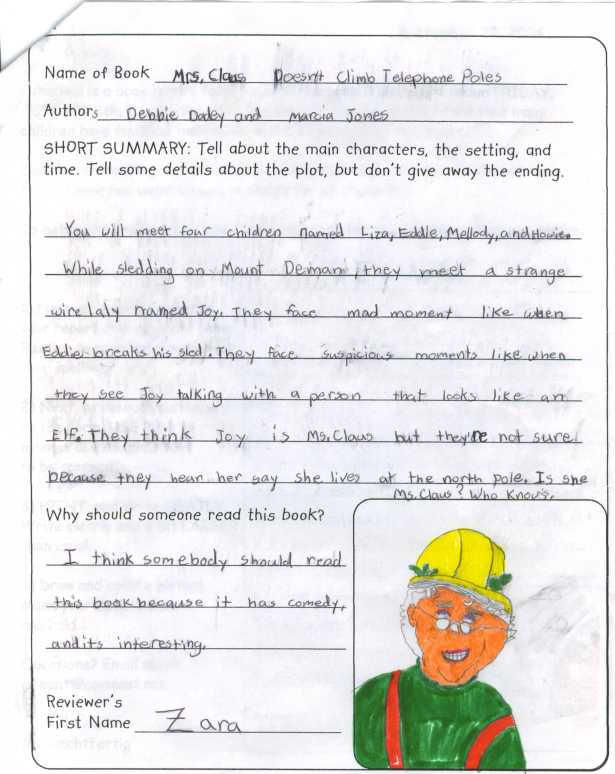 Name of Book Mrs. Claus Doesn't Climb Telephone Poles
Authors Debbie Dadey and Marcia Jones
SHORT SUMMARY: Tell about the main characters, the setting, and
time. Tell some details about the plot, but don't give away the ending.
You will meet four children named Liza, Eddie, Mellody, and Howie.
While sledding on Mount Deman, they meet a strange
wire laly named Joy. They face mad moment like when
Eddie breaks his sled. They face suspicious moments like when
they see Joy talking with a person that looks like an
Elf. They think Joy is Ms. Claus but they're not sure
because they hear her say she lives at the north pole. Is she
Ms. Claus? Who Knows.
Why should someone read this book?
I think somebody should read
this book because it has comedy,
and its interesting.
Reviewer's
First Name Zara